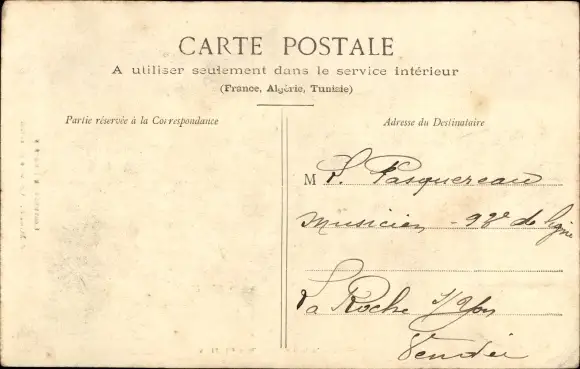 CARTE POSTALE
A utiliser seulement dans le service intérieur
(France, Algérie, Tunisie)
Partie réservée à la Correspondance
Adresse du Destinataire
M L. Pasquereau
Musicien - 93e de ligne
La Roche s/Yon
Vendée